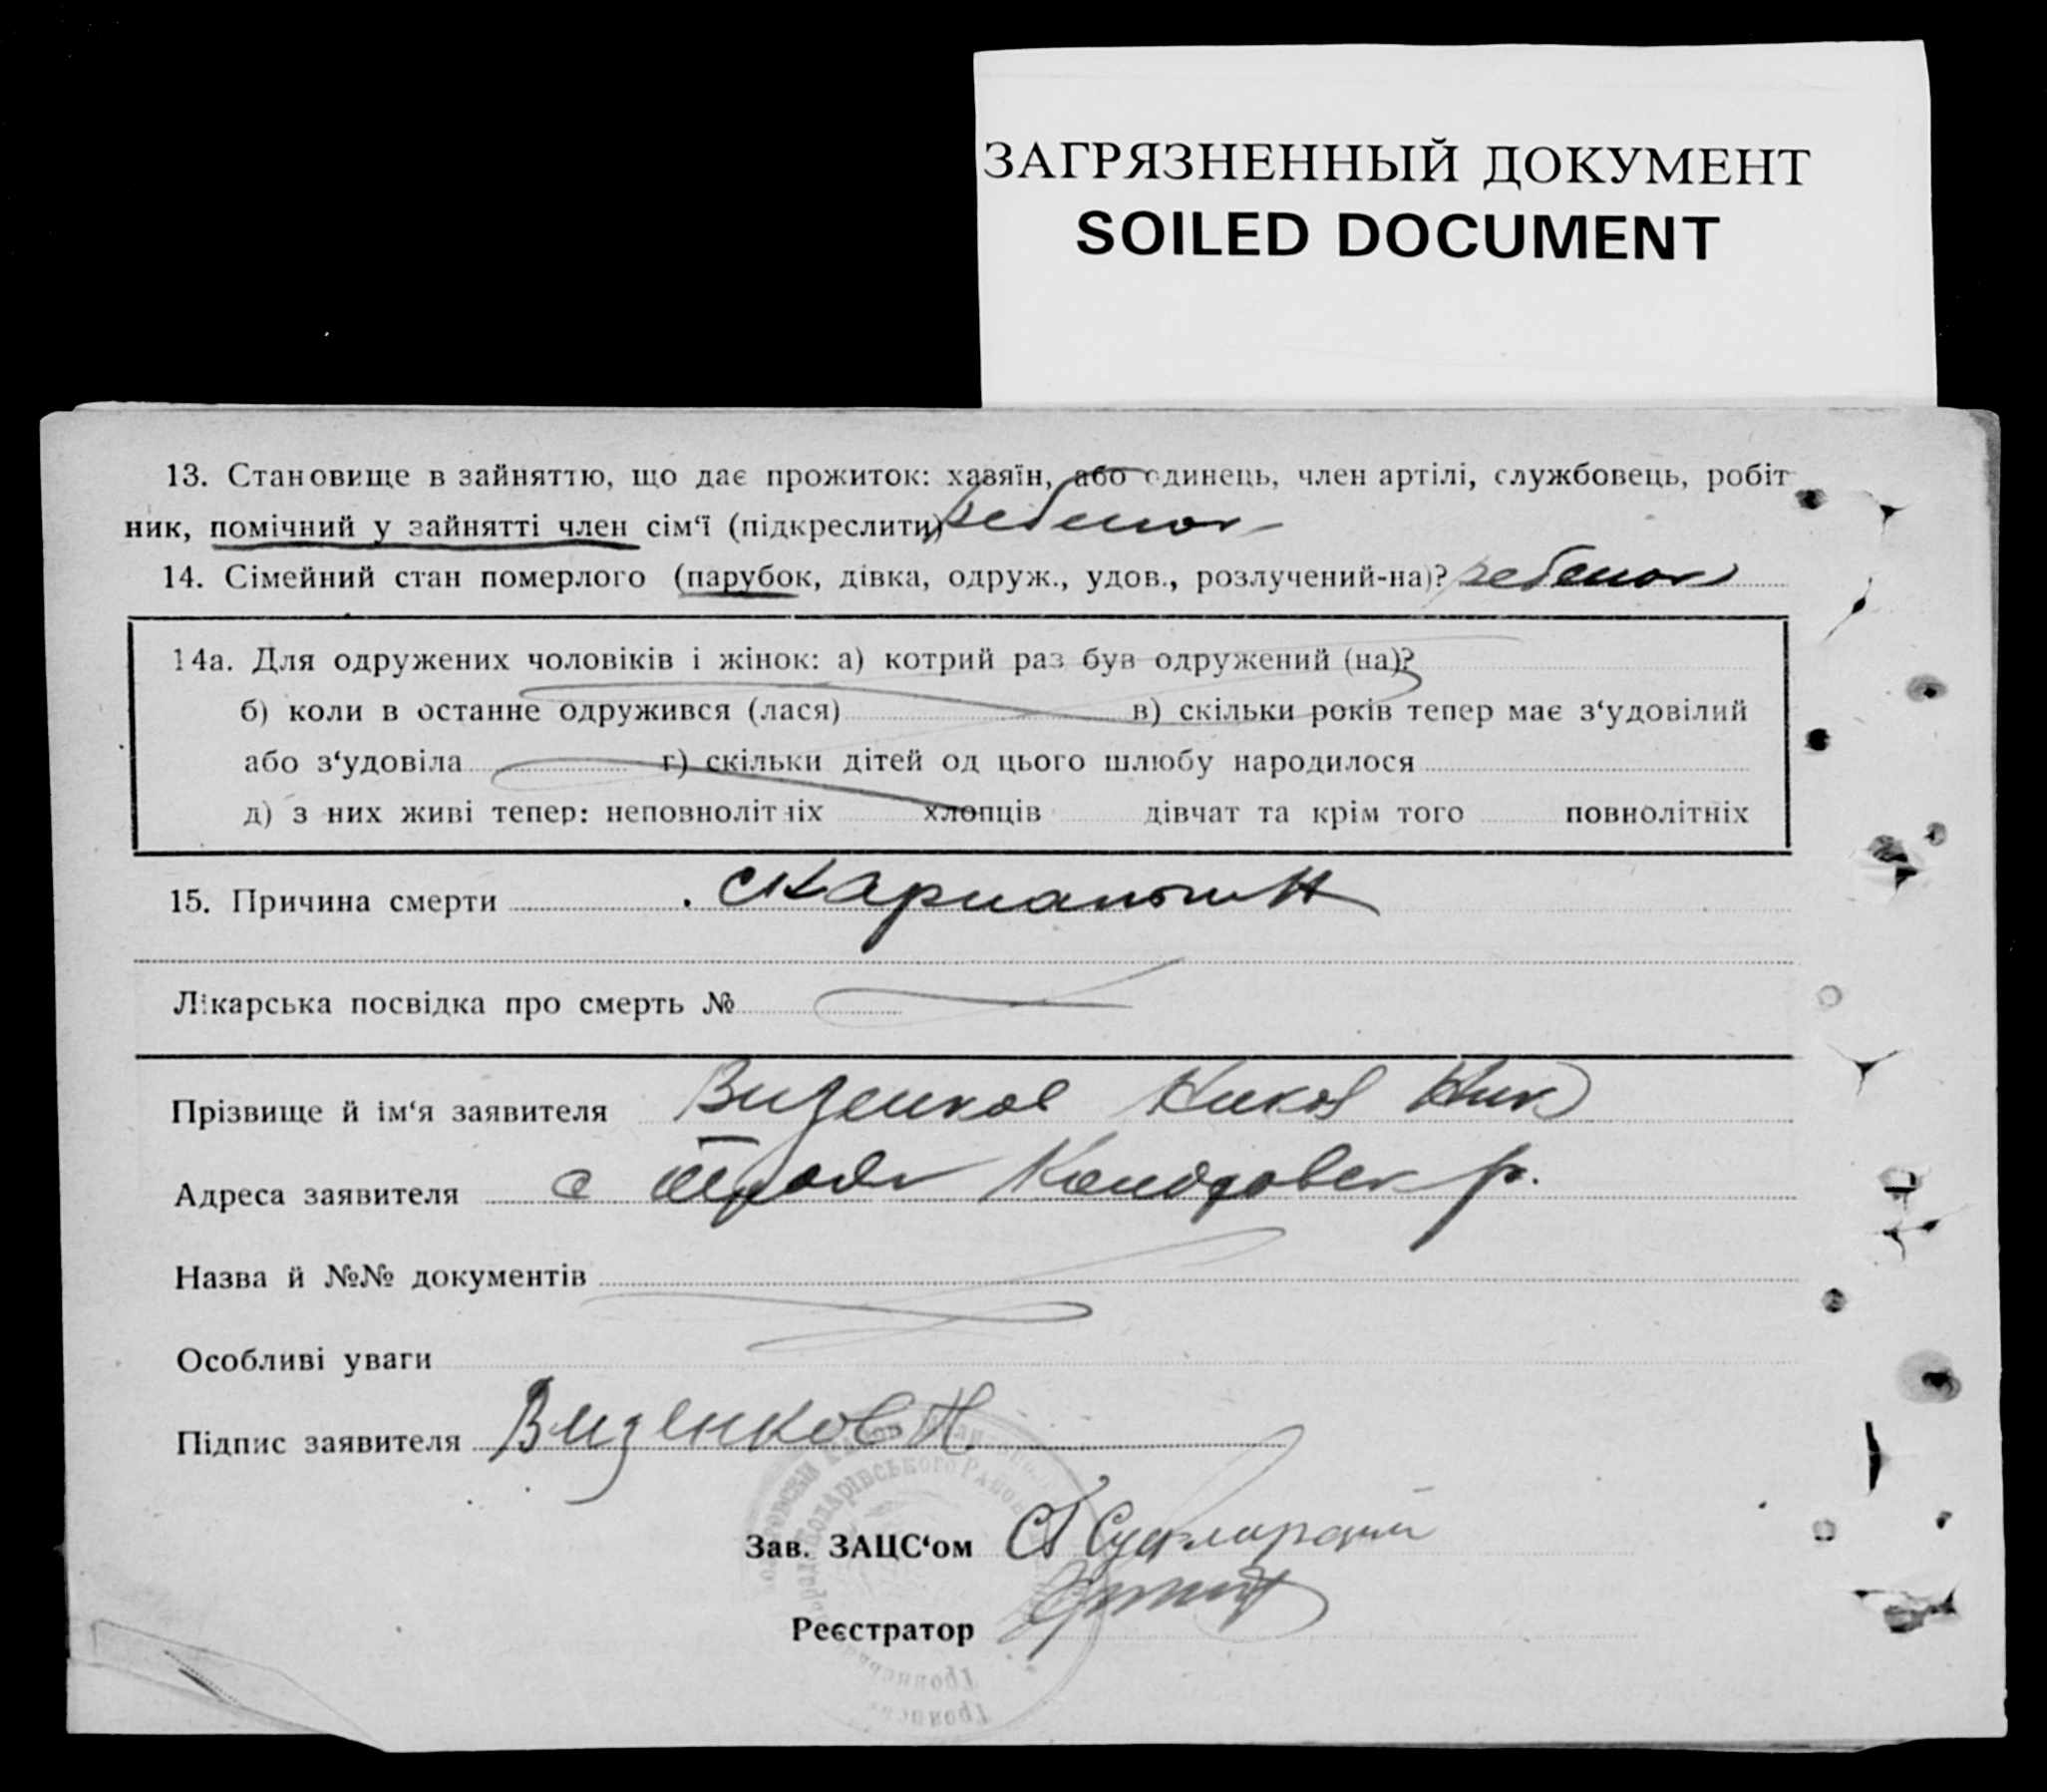 ЗАГРЯЗНЕННЫЙ ДОКУМЕНТ
SOILED DOCUMENT
13. Становище в зайняттю, що дає прожиток: хазяїн, або одинець, член артілі, службовець, робіт-
ник, помічний у зайнятті член сім‘ї (підкреслити) ребенок
14. Сімейний стан померлого (парубок, дівка, одруж., удов., розлучений-на)? ребенок
14а. Для одружених чоловіків і жінок: а) котрий раз був одружений (на)?
б) коли в останнє одружився (лася) в) скільки років тепер має з‘удовілий
або з‘удовіла г) скільки дітей од цього шлюбу народилося
д) з них живі тепер: неповнолітніх хлопців дівчат та крім того повнолітніх
15. Причина смерти скарлатин
Лікарська посвідка про смерть №
Прізвище й ім‘я заявителя Визенков Никол Ник
Адреса заявителя с
Назва й №№ документів
Особливі уваги
Підпис заявителя Визенков Н.
Зав. ЗАЦС‘ом
Реєстратор